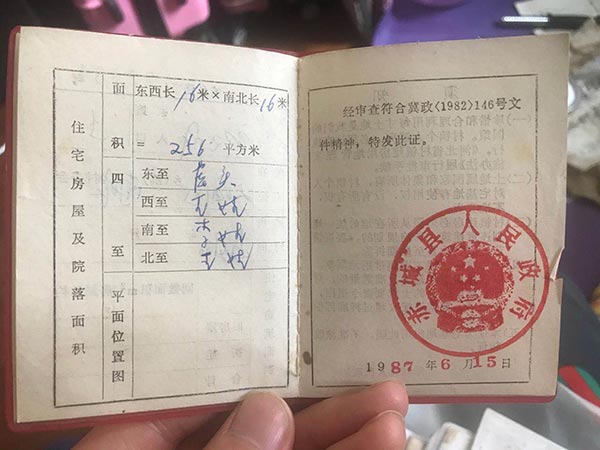 住宅房屋及院落面积
面积
东西长16米×南北长16米
= 256 平方米
四至
东至
西至
南至
北至
平面位置图
经审查符合冀政<1982>146号文
件精神,特发此证。
赤城县人民政府
1987年6月15日